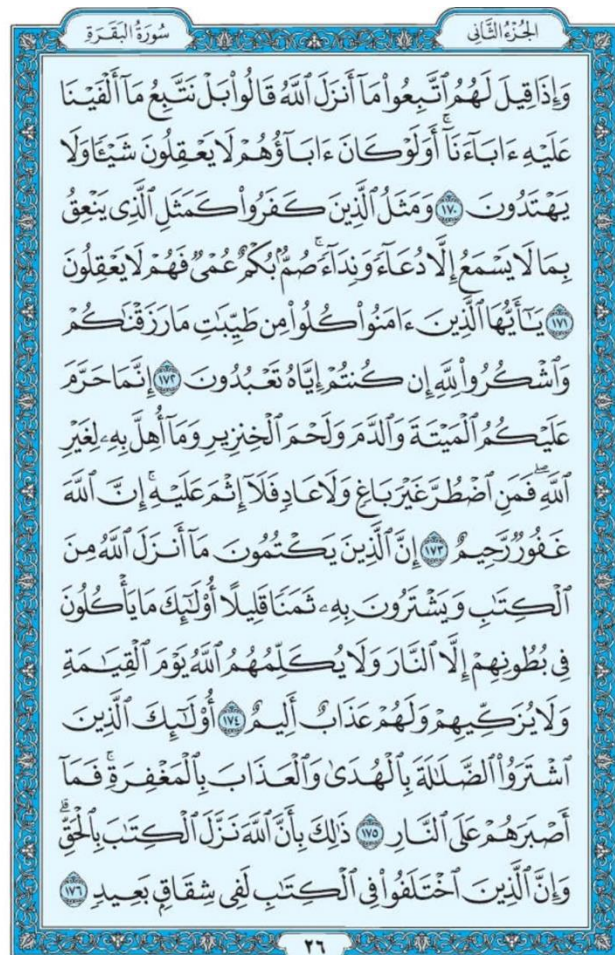 الجُزْءُ الثَّانِي
سُورَةُ البَقَرَةِ
وَإِذَا قِيلَ لَهُمُ ٱتَّبِعُوا۟ مَآ أَنزَلَ ٱللَّهُ قَالُوا۟ بَلْ نَتَّبِعُ مَآ أَلْفَيْنَا
عَلَيْهِ ءَابَآءَنَآ ۗ أَوَلَوْ كَانَ ءَابَآؤُهُمْ لَا يَعْقِلُونَ شَيْـًٔا وَلَا
يَهْتَدُونَ ١٧٠ وَمَثَلُ ٱلَّذِينَ كَفَرُوا۟ كَمَثَلِ ٱلَّذِى يَنْعِقُ
بِمَا لَا يَسْمَعُ إِلَّا دُعَآءً وَنِدَآءً ۚ صُمٌّۢ بُكْمٌ عُمْىٌ فَهُمْ لَا يَعْقِلُونَ
١٧١ يَـٰٓأَيُّهَا ٱلَّذِينَ ءَامَنُوا۟ كُلُوا۟ مِن طَيِّبَـٰتِ مَا رَزَقْنَـٰكُمْ
وَٱشْكُرُوا۟ لِلَّهِ إِن كُنتُمْ إِيَّاهُ تَعْبُدُونَ ١٧٢ إِنَّمَا حَرَّمَ
عَلَيْكُمُ ٱلْمَيْتَةَ وَٱلدَّمَ وَلَحْمَ ٱلْخِنزِيرِ وَمَآ أُهِلَّ بِهِۦ لِغَيْرِ
ٱللَّهِ ۖ فَمَنِ ٱضْطُرَّ غَيْرَ بَاغٍ وَلَا عَادٍ فَلَآ إِثْمَ عَلَيْهِ ۚ إِنَّ ٱللَّهَ
غَفُورٌ رَّحِيمٌ ١٧٣ إِنَّ ٱلَّذِينَ يَكْتُمُونَ مَآ أَنزَلَ ٱللَّهُ مِنَ
ٱلْكِتَـٰبِ وَيَشْتَرُونَ بِهِۦ ثَمَنًا قَلِيلًا أُو۟لَـٰٓئِكَ مَا يَأْكُلُونَ
فِى بُطُونِهِمْ إِلَّا ٱلنَّارَ وَلَا يُكَلِّمُهُمُ ٱللَّهُ يَوْمَ ٱلْقِيَـٰمَةِ
وَلَا يُزَكِّيهِمْ وَلَهُمْ عَذَابٌ أَلِيمٌ ١٧٤ أُو۟لَـٰٓئِكَ ٱلَّذِينَ
ٱشْتَرَوُا۟ ٱلضَّلَـٰلَةَ بِٱلْهُدَىٰ وَٱلْعَذَابَ بِٱلْمَغْفِرَةِ ۚ فَمَآ
أَصْبَرَهُمْ عَلَى ٱلنَّارِ ١٧٥ ذَٰلِكَ بِأَنَّ ٱللَّهَ نَزَّلَ ٱلْكِتَـٰبَ بِٱلْحَقِّ ۗ
وَإِنَّ ٱلَّذِينَ ٱخْتَلَفُوا۟ فِى ٱلْكِتَـٰبِ لَفِى شِقَاقٍۭ بَعِيدٍ ١٧٦
٢٦